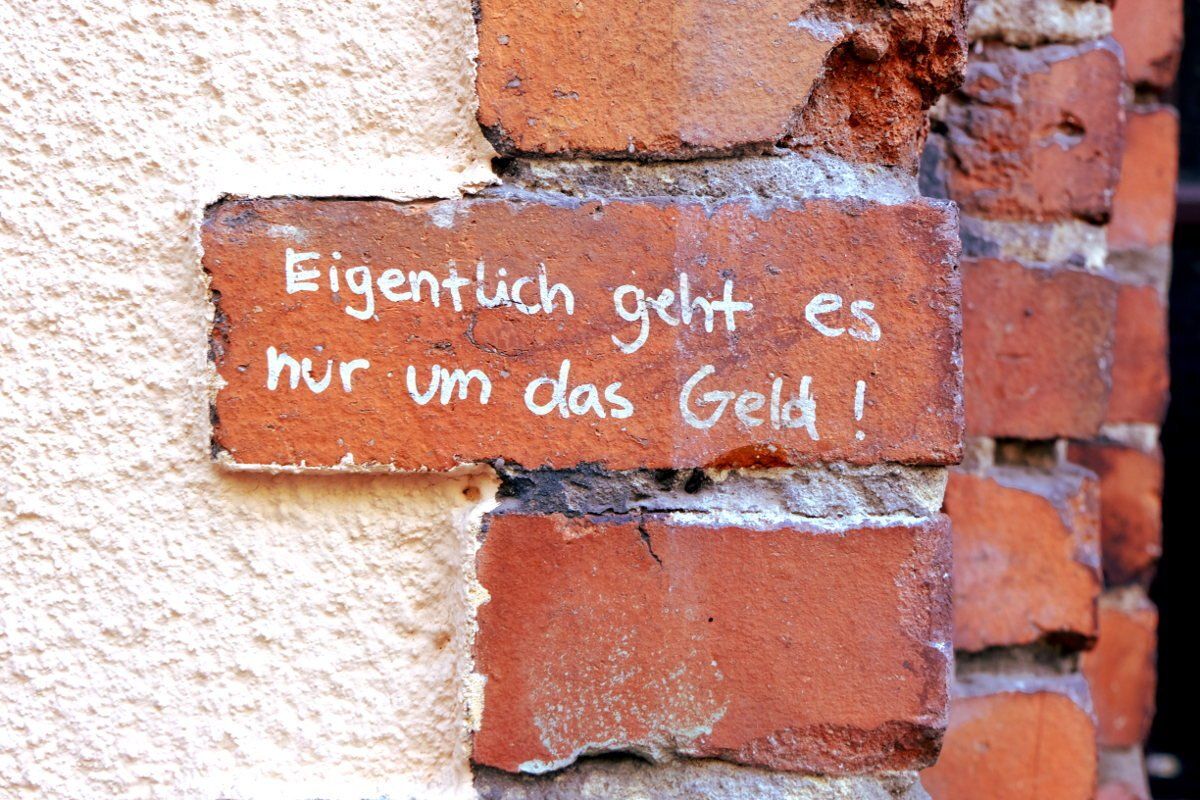 Eigentlich geht es
nur um das Geld !